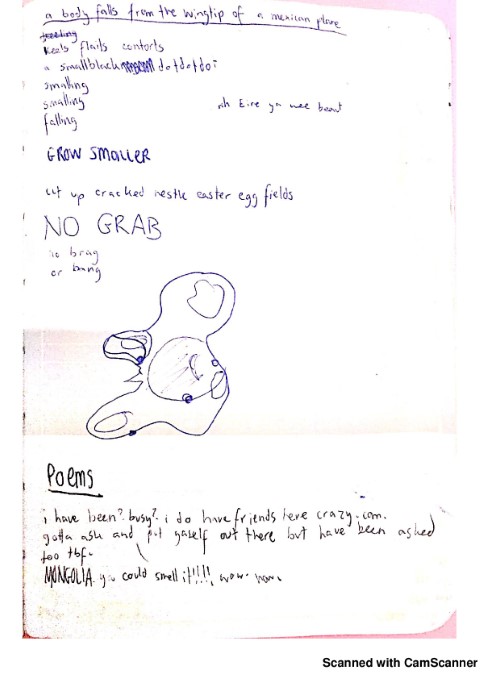 a body falls from the wingtip of a mexican plane
keels flails contorts
a smallblack dotdotdot
smalling
smalling
ah Eire ya wee beaut
falling
GROW SMALLER
cut up cracked nestle easter egg fields
NO GRAB
no brag
or bang
Poems
i have been? busy? i do have friends here crazy. am.
gotta ask and put yaself out there but have been asked
too tbf.
MONGOLIA. you could smell it!!!!, wow. wow.
Scanned with CamScanner